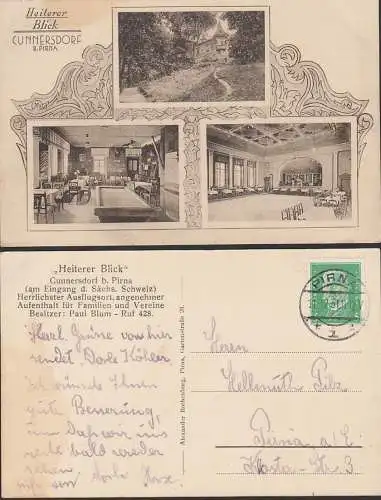 Heiterer
Blick
CUNNERSDORF
B. PIRNA
„Heiterer Blick"
Cunnersdorf b. Pirna
(am Eingang d. Sächs. Schweiz)
Herrlichster Ausflugsort, angenehmer
Aufenthalt für Familien und Vereine
Besitzer: Paul Blum - Ruf 428.
Herzl. Grüße von hier
sendet Dorle Köhler
wünsche Ihnen
gute Besserung,
uns
recht bald wieder
sehen
Alexander Rothenburg, Pirna, Gartenstraße 26.
PIRNA
Herrn
Hellmuth
Pirna a. E.